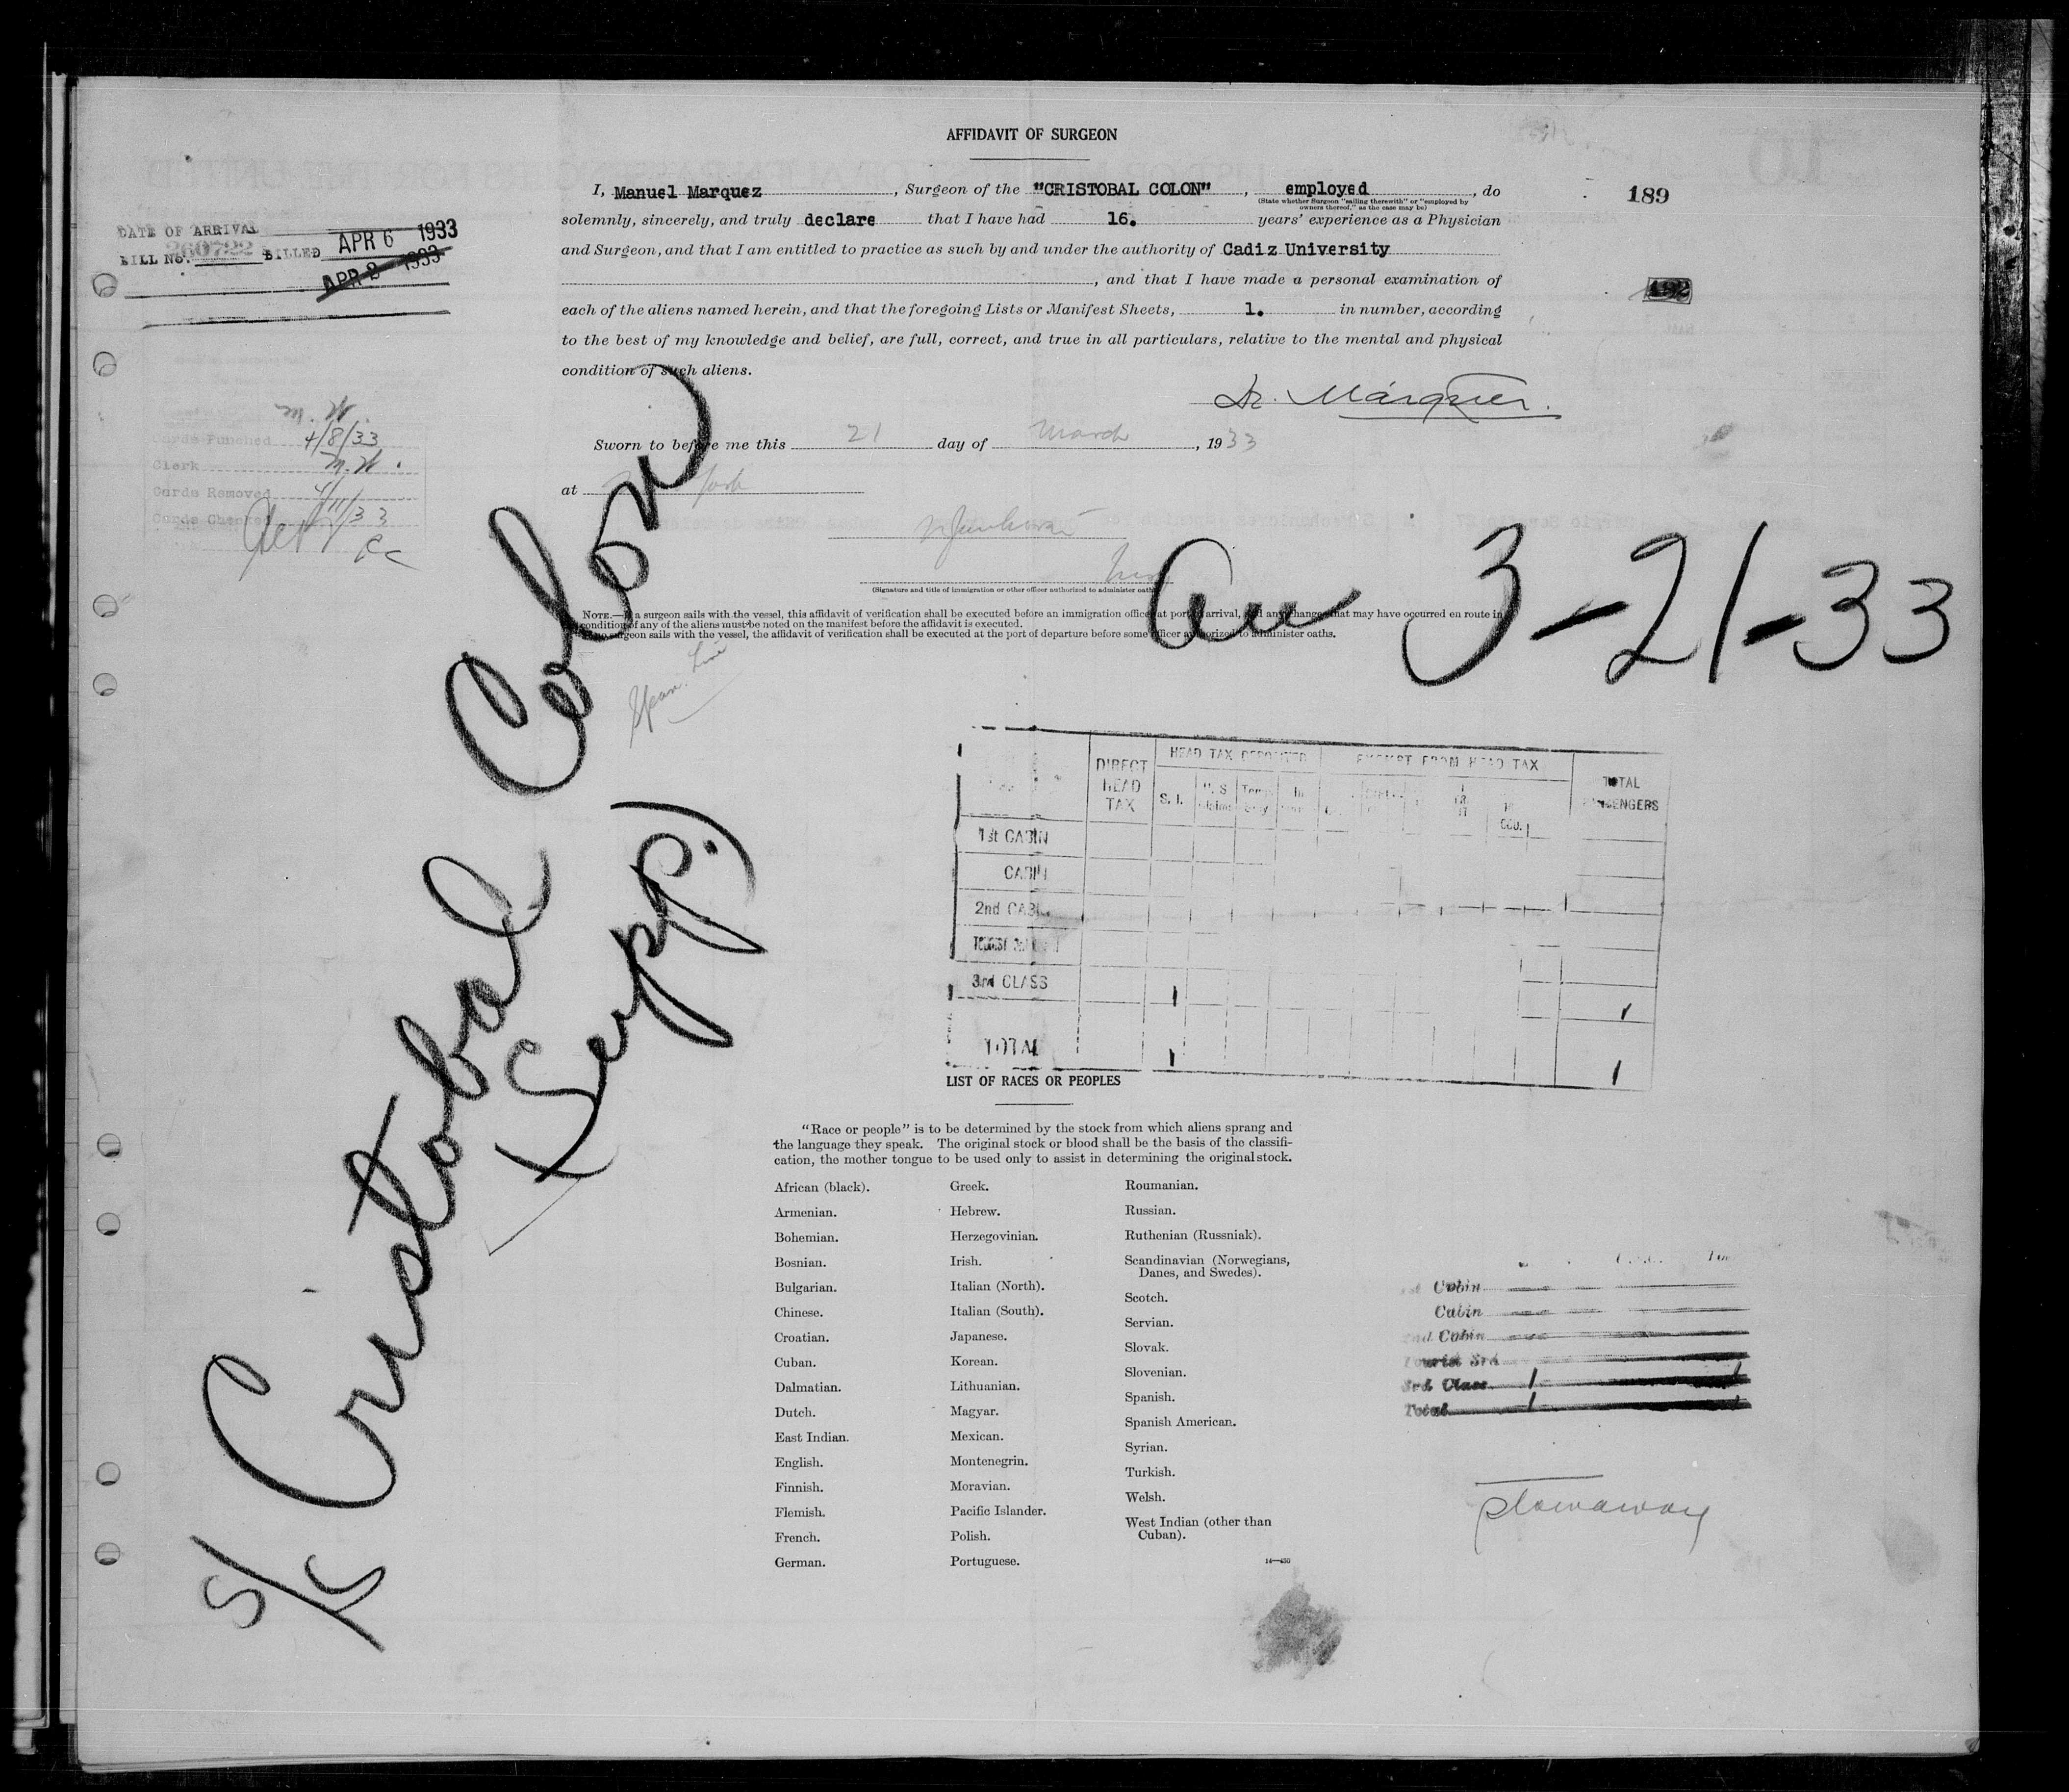 AFFIDAVIT OF SURGEON
I, Manuel Marquez, Surgeon of the "CRISTOBAL COLON", employed, do
(State whether Surgeon "sailing therewith" or "employed by
owners thereof," as the case may be)
solemnly, sincerely, and truly declare that I have had 16. years' experience as a Physician
and Surgeon, and that I am entitled to practice as such by and under the authority of Cadiz University
, and that I have made a personal examination of
each of the aliens named herein, and that the foregoing Lists or Manifest Sheets, 1. in number, according
to the best of my knowledge and belief, are full, correct, and true in all particulars, relative to the mental and physical
condition of such aliens.
189
DATE OF ARRIVAL
BILL No. 260722 BILLED APR 6 1933
APR 3 1933
Dr. Márquez.
Sworn to before me this 21 day of March, 1933
at York
M. W.
Cards Punched 4/8/33
Clerk M. W.
Cards Removed
Cards Checked 4/11/33
(Signature and title of immigration or other officer authorized to administer oath
NOTE.— a surgeon sails with the vessel, this affidavit of verification shall be executed before an immigration officer at port arrival, and any change that may have occurred en route in
condition of any of the aliens must be noted on the manifest before the affidavit is executed.
surgeon sails with the vessel, the affidavit of verification shall be executed at the port of departure before some officer authorized to administer oaths.
3-21-33
Span. Line
S/S Cristobal Colon
(Supp.)
DIRECT HEAD TAX
HEAD TAX DEPOSITED
EXEMPT FROM HEAD TAX
TOTAL PASSENGERS
S. I.
1st CABIN
CABIN
2nd CABIN
3rd CLASS 1 1
TOTAL 1 1
LIST OF RACES OR PEOPLES
"Race or people" is to be determined by the stock from which aliens sprang and
the language they speak. The original stock or blood shall be the basis of the classifi-
cation, the mother tongue to be used only to assist in determining the original stock.
African (black).
Armenian.
Bohemian.
Bosnian.
Bulgarian.
Chinese.
Croatian.
Cuban.
Dalmatian.
Dutch.
East Indian.
English.
Finnish.
Flemish.
French.
German.
Greek.
Hebrew.
Herzegovinian.
Irish.
Italian (North).
Italian (South).
Japanese.
Korean.
Lithuanian.
Magyar.
Mexican.
Montenegrin.
Moravian.
Pacific Islander.
Polish.
Portuguese.
Roumanian.
Russian.
Ruthenian (Russniak).
Scandinavian (Norwegians,
Danes, and Swedes).
Scotch.
Servian.
Slovak.
Slovenian.
Spanish.
Spanish American.
Syrian.
Turkish.
Welsh.
West Indian (other than
Cuban).
Cabin
Cabin
2nd Cabin
Tourist 3rd
3rd Class 1 1
Total 1 1
Stowaway